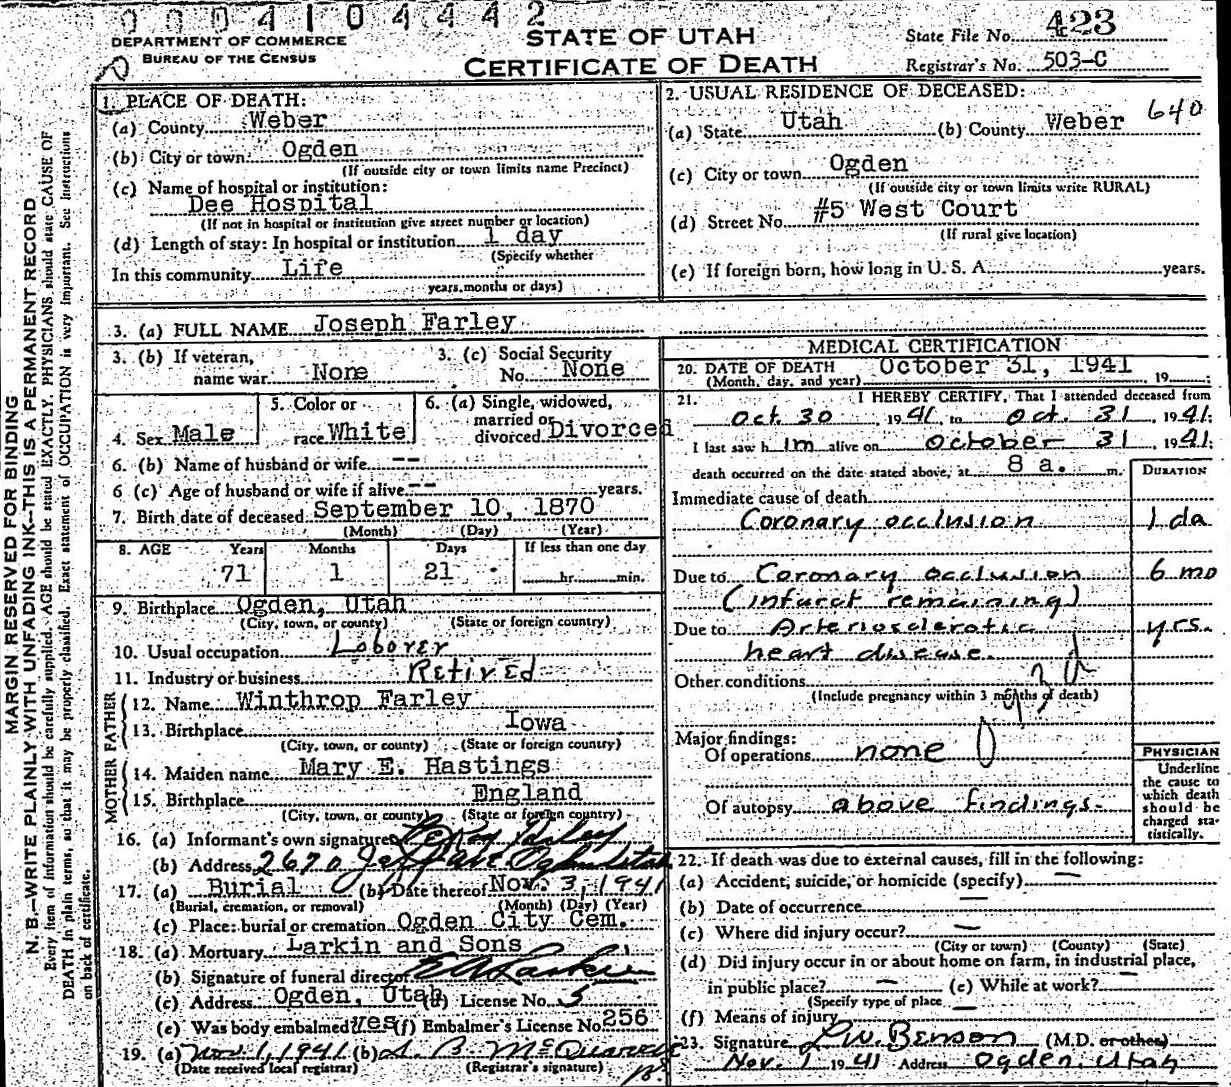 0004104442
DEPARTMENT OF COMMERCE
BUREAU OF THE CENSUS
STATE OF UTAH
CERTIFICATE OF DEATH
State File No. 423
Registrar's No. 503-C
MARGIN RESERVED FOR BINDING
N. B.—WRITE PLAINLY WITH UNFADING INK—THIS IS A PERMANENT RECORD
Every item of information should be carefully supplied. AGE should be stated EXACTLY. PHYSICIANS should state CAUSE OF
DEATH in plain terms, so that it may be properly classified. Exact statement of OCCUPATION is very important. See Instructions
on back of certificate.
1. PLACE OF DEATH:
(a) County Weber
(b) City or town Ogden
(If outside city or town limits name Precinct)
(c) Name of hospital or institution:
Dee Hospital
(If not in hospital or institution give street number or location)
(d) Length of stay: In hospital or institution 1 day
(Specify whether
In this community Life
years, months or days)
2. USUAL RESIDENCE OF DECEASED:
640
(a) State Utah (b) County Weber
(c) City or town Ogden
(If outside city or town limits write RURAL)
(d) Street No. #5 West Court
(If rural give location)
(e) If foreign born, how long in U. S. A. years.
3. (a) FULL NAME Joseph Farley
3. (b) If veteran, name war None
3. (c) Social Security No. None
4. Sex Male
5. Color or race White
6. (a) Single, widowed, married or divorced Divorced
6. (b) Name of husband or wife --
6 (c) Age of husband or wife if alive -- years.
7. Birth date of deceased September 10, 1870
(Month) (Day) (Year)
8. AGE Years Months Days If less than one day
71 1 21 hr. min.
9. Birthplace Ogden, Utah
(City, town, or county) (State or foreign country)
10. Usual occupation Laborer
11. Industry or business Retired
FATHER
12. Name Winthrop Farley
13. Birthplace Iowa
(City, town, or county) (State or foreign country)
MOTHER
14. Maiden name Mary E. Hastings
15. Birthplace England
(City, town, or county) (State or foreign country)
16. (a) Informant's own signature LeRoy Farley
(b) Address 2670 Jeff Ave. Ogden Utah
17. (a) Burial (b) Date thereof Nov. 3, 1941
(Burial, cremation, or removal) (Month) (Day) (Year)
(c) Place: burial or cremation Ogden City Cem.
18. (a) Mortuary Larkin and Sons
(b) Signature of funeral director E A Larkin
(c) Address Ogden, Utah (d) License No. 5
(e) Was body embalmed Yes (f) Embalmer's License No. 256
19. (a) Nov 1, 1941 (b)
(Date received local registrar) (Registrar's signature)
MEDICAL CERTIFICATION
20. DATE OF DEATH October 31, 1941
(Month, day, and year) 19
21. I HEREBY CERTIFY, That I attended deceased from
Oct. 30, 1941, to Oct. 31, 1941.
I last saw him alive on October 31 1941.
death occurred on the date stated above, at 8 a. m.
DURATION
Immediate cause of death
Coronary occlusion 1 da
Due to Coronary occlusion 6 mo
(infarct remaining)
Due to Arteriosclerotic yrs.
heart disease.
Other conditions
(Include pregnancy within 3 months of death)
Major findings:
Of operations none
Of autopsy above findings.
PHYSICIAN
Underline
the cause to
which death
should be
charged sta-
tistically.
22. If death was due to external causes, fill in the following:
(a) Accident, suicide, or homicide (specify) —
(b) Date of occurrence —
(c) Where did injury occur? —
(City or town) (County) (State)
(d) Did injury occur in or about home on farm, in industrial place,
in public place? — (e) While at work? —
(Specify type of place
(f) Means of injury —
23. Signature L. W. Benson (M.D. or other)
Nov. 1 1941 Address Ogden, Utah